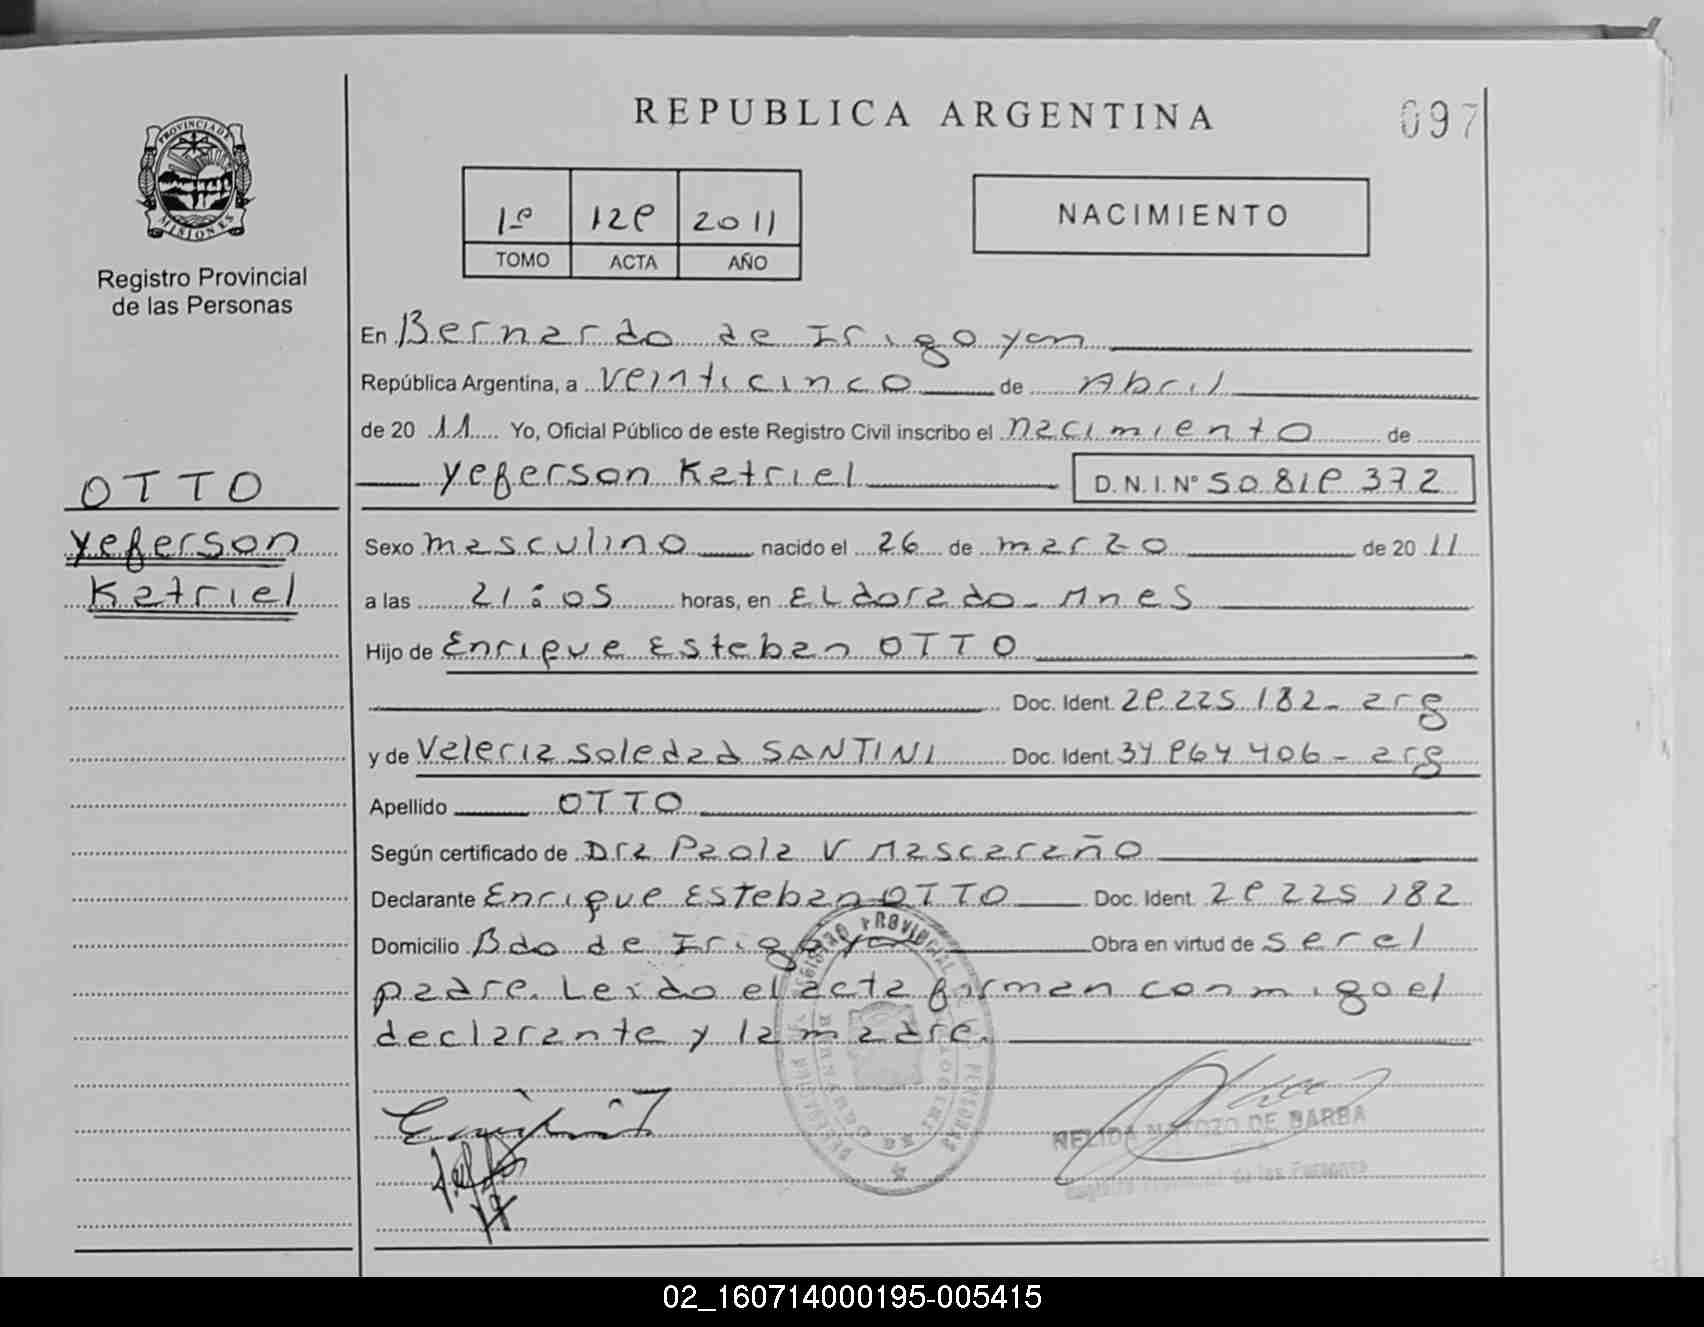 REPUBLICA ARGENTINA
097
PROVINCIA DE MISIONES
1º 129 2011
TOMO ACTA AÑO
NACIMIENTO
Registro Provincial
de las Personas
En Bernardo de Irigoyen
República Argentina, a veinticinco de Abril
de 20 11 Yo, Oficial Público de este Registro Civil inscribo el nacimiento de
Yeferson Katriel D.N.I. Nº 50.819.372
OTTO
Yeferson
Katriel
Sexo masculino nacido el 26 de marzo de 20 11
a las 21:05 horas, en ELdorado - Mnes
Hijo de Enrique Esteban OTTO
Doc. Ident. 29.225.182 - arg
y de Valeria Soledad SANTINI Doc. Ident. 34 964 406 - arg
Apellido OTTO
Según certificado de Dra Paola V Mascaraño
Declarante Enrique Esteban OTTO Doc. Ident. 29 225 182
Domicilio Bdo de Irigoyen Obra en virtud de ser el
padre. Leido el acta firman conmigo el
declarante y la madre.
NELIDA MATOZO DE BARBA
Registro Provincial de las Personas
02_160714000195-005415